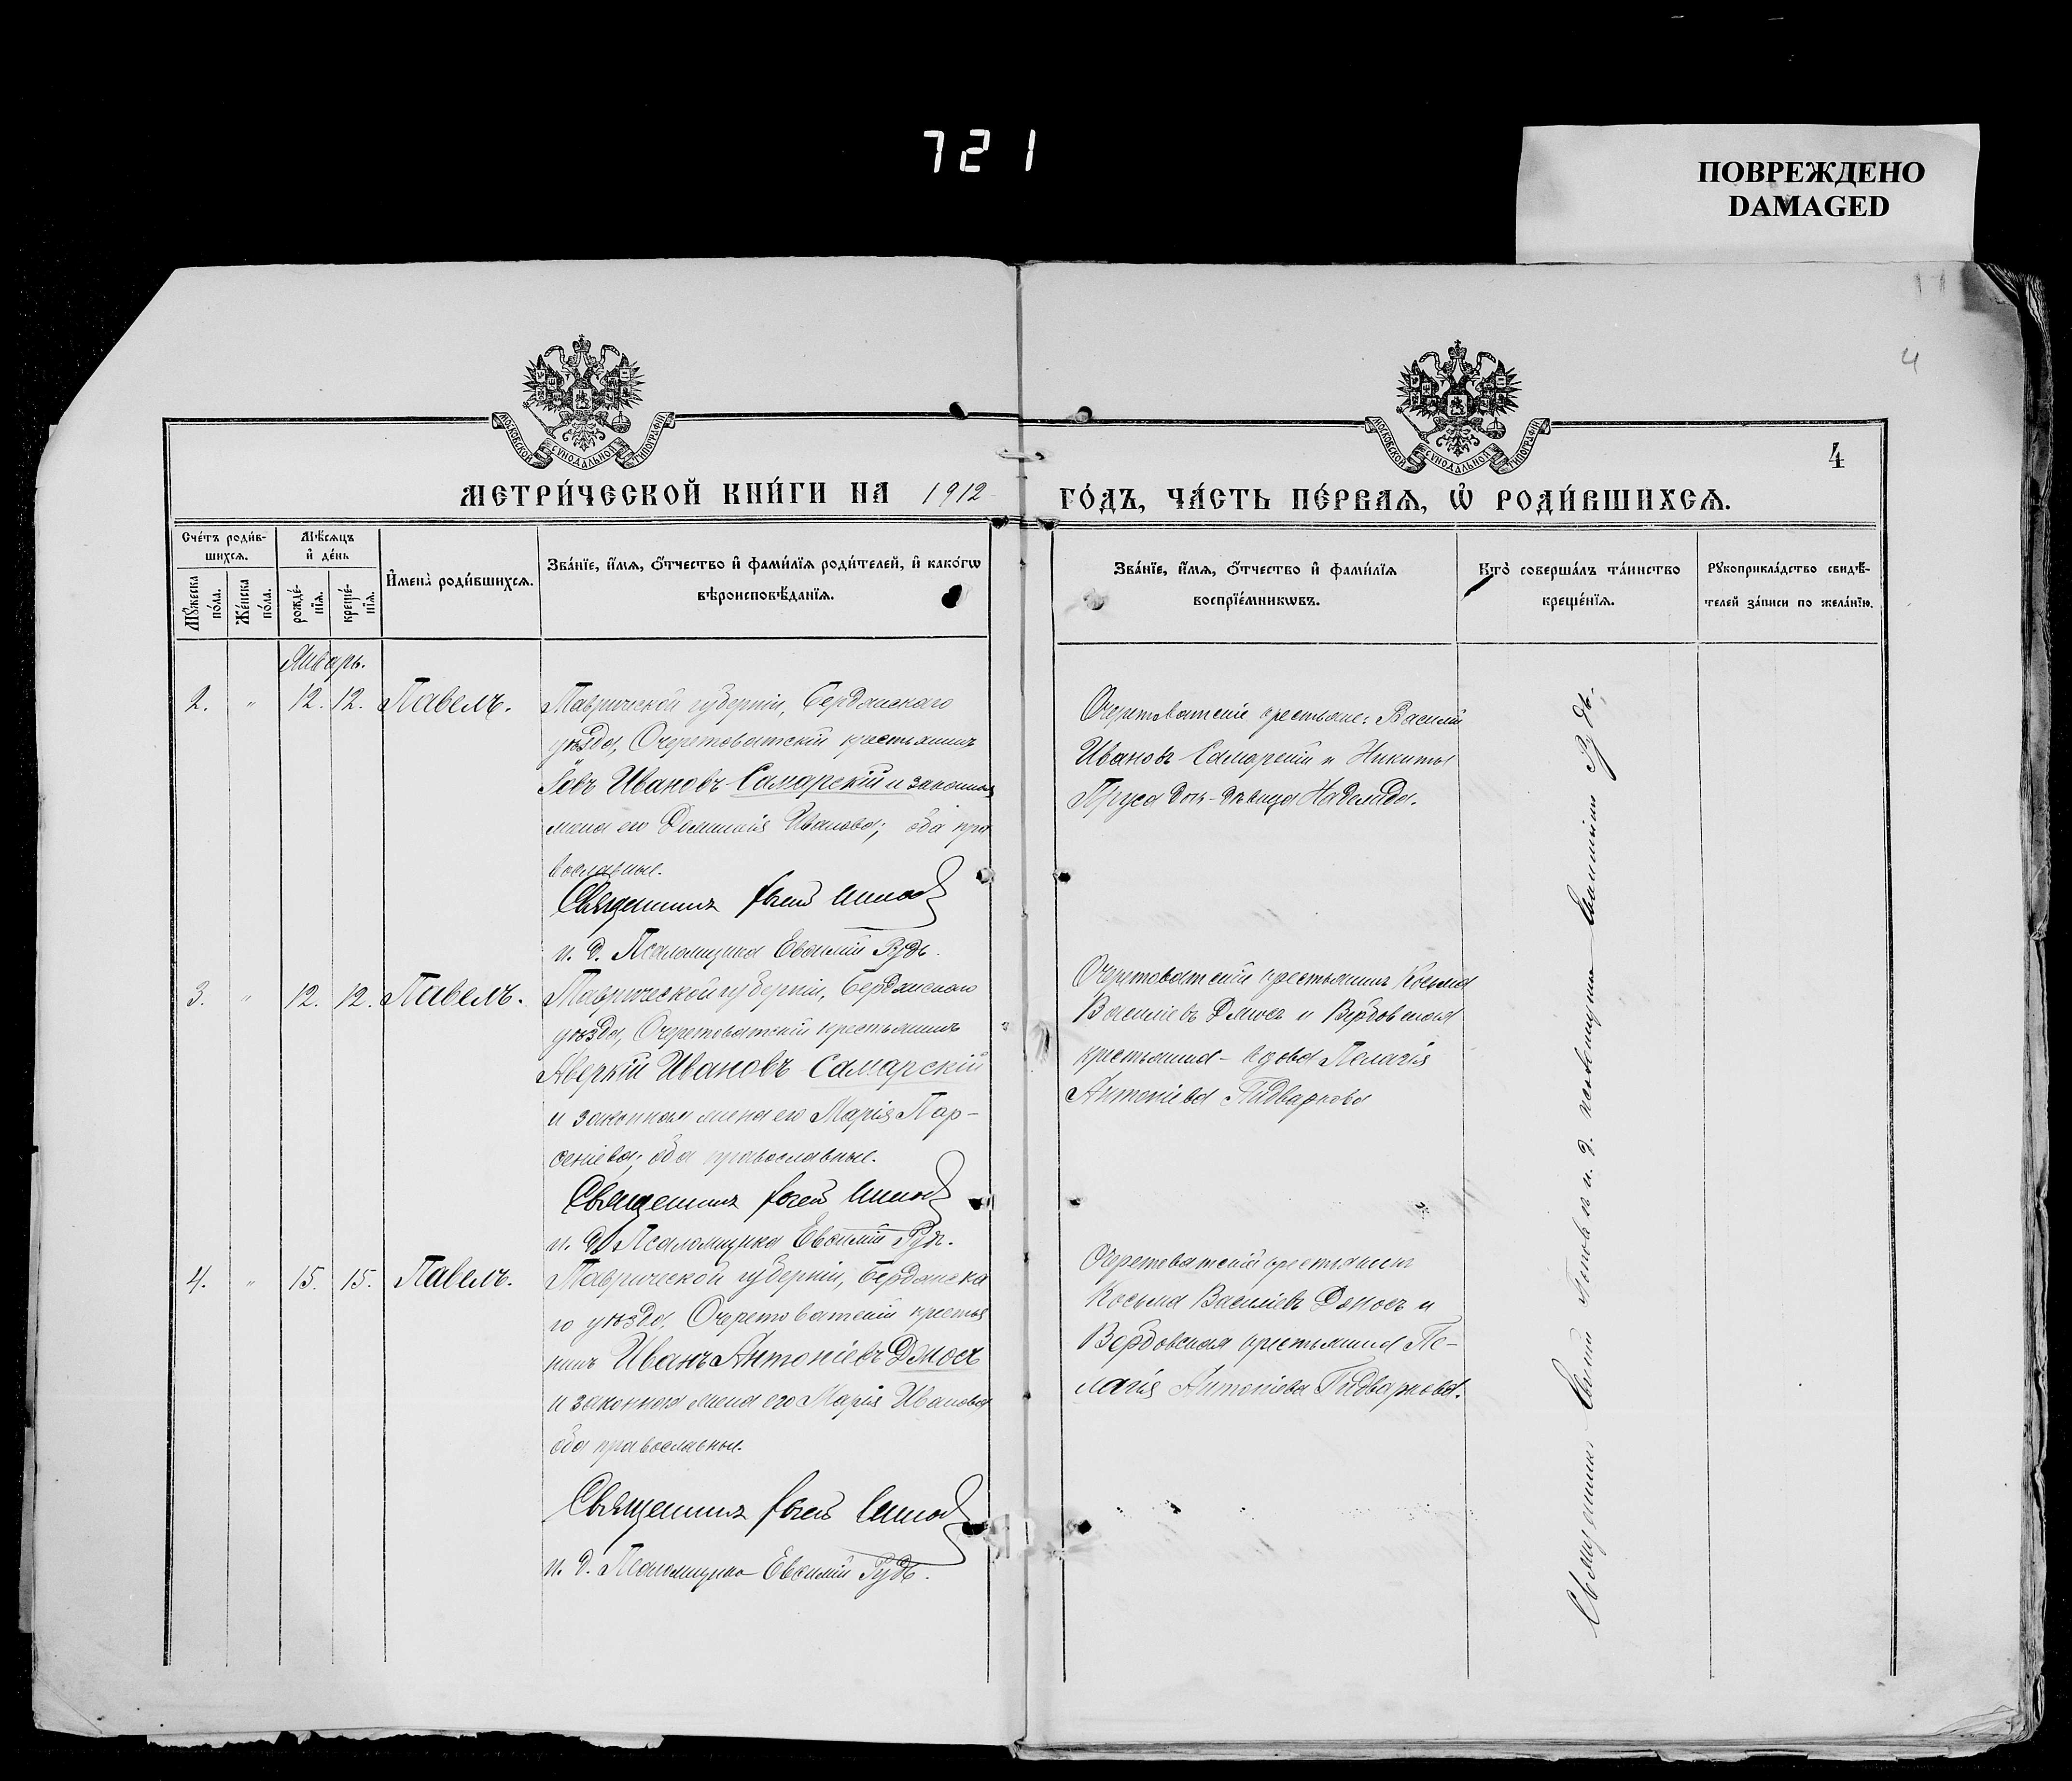 721
ПОВРЕЖДЕНО
DAMAGED
4
МОСКОВСКОЙ СѴНОДАЛЬНОЙ ТИПОГРАФІИ
МОСКОВСКОЙ СѴНОДАЛЬНОЙ ТИПОГРАФІИ
4
МЕТРИ́ЧЕСКОЙ КНИ́ГИ НА 1912
ГО́ДЪ, ЧА́СТЬ ПЕ́РВАѦ, Ѡ҆ РОДИ́ВШИХСѦ.
Сче́тъ роди́в-
шихсѧ.
Мꙋ́жеска
по́ла.
Же́нска
по́ла.
Мѣ́сѧцъ
и҆ де́нь
рожде́-
нїѧ.
креще́-
нїѧ.
И҆мена̀ роди́вшихсѧ.
Зва́нїе, и҆́мѧ, ѻ҆́тчество и҆ фами́лїѧ роди́телей, и҆ како́гѡ
вѣроисповѣ́данїѧ.
Зва́нїе, и҆́мѧ, ѻ҆́тчество и҆ фами́лїѧ
воспрїе́мникѡвъ.
Кто̀ соверша́лъ та́инство
креще́нїѧ.
Рꙋкоприкла́дство свидѣ́-
телей за́писи по жела́нїю.
Январь.
2. " 12. 12. Павелъ.
Таврической губерніи, Бердянскаго
уѣзда, Очеретоватскій крестьянинъ
Іовъ Ивановъ Самарскій и законная
жена его Домникія Иванова; оба пра
вославные.
Священникъ
и. д. Псаломщика Евѳимій Рудь.
Очеретоватскіе крестьяне: Василій
Ивановъ Самарскій и Никиты
Пруса дочь-дѣвица Надежда.
3. " 12. 12. Павелъ.
Таврической губерніи, Бердянскаго
уѣзда, Очеретоватскій крестьянинъ
Аверкій Ивановъ Самарскій
и законная жена его Марія Пар-
ѳеніева; оба православные.
Священникъ
и. д. Псаломщика Евѳимій Рудь.
Очеретоватскій крестьянинъ Косьма
Василіевъ Дмосъ и Вербовская
крестьянка - вдова Пелагія
Антоніева Гидваркова
4. " 15. 15. Павелъ.
Таврической губерніи, Бердянска
го уѣзда, Очеретоватскій крестья
нинъ Иванъ Антоніевъ Дмосъ
и законная жена его Марія Иванова
оба православные.
Священникъ
и. д. Псаломщика Евѳимій Рудь.
Очеретоватскій крестьянинъ
Косьма Василіевъ Дмосъ и
Вербовская крестьянка Пе-
лагія Антоніева Гидваркова.
Священникъ Поповъ и и. д. псаломщика Евѳимій Рудь.